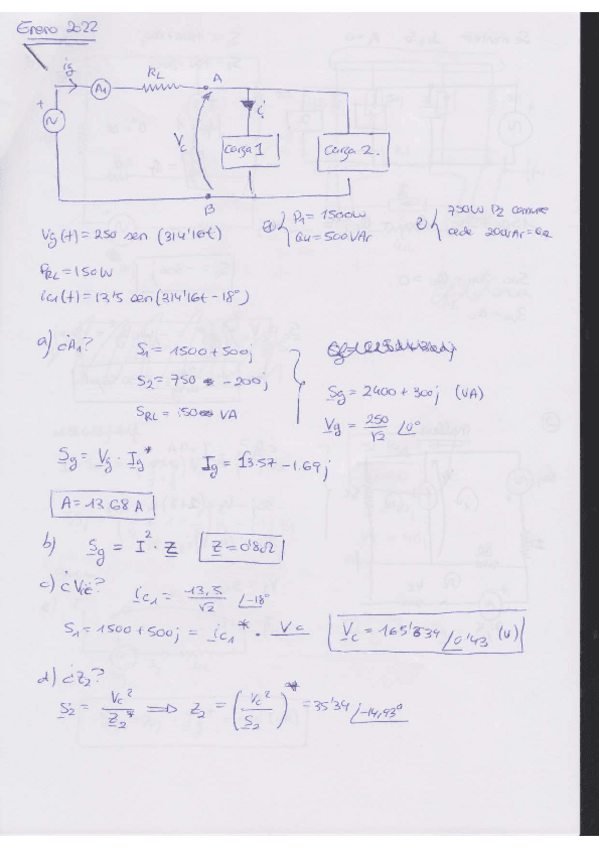 Enero 2022
ig
A1
RL
A
+
Vc
i1
Carga 1
Carga 2.
B
Vg(t) = 250 sen (314'16t)
1) P1 = 1500W
Q1 = 500 VAr
2) 750W P2 consume
cede 200VAr = Q2
PRL = 150W
ic1(t) = 13'5 sen (314'16t - 18°)
a) ¿A1?
S1 = 1500 + 500j
S2 = 750 - 200j
SRL = 150 VA
Sg = 2400 + 300j (VA)
Vg = 250/√2 ∠0°
Sg = Vg · Ig*
Ig = 13.57 - 1.69j
A = 13.68 A
b) Sg = I² · Z
Z = 0'8Ω
c) ¿Vc?
ic1 = 13,5/√2 ∠-18°
S1 = 1500 + 500j = ic1* · Vc
Vc = 165'834 ∠0'43 (V)
d) ¿Z2?
S2 = Vc²/Z2* ⟹ Z2 = (Vc²/S2)* = 35'34 ∠-14,93°